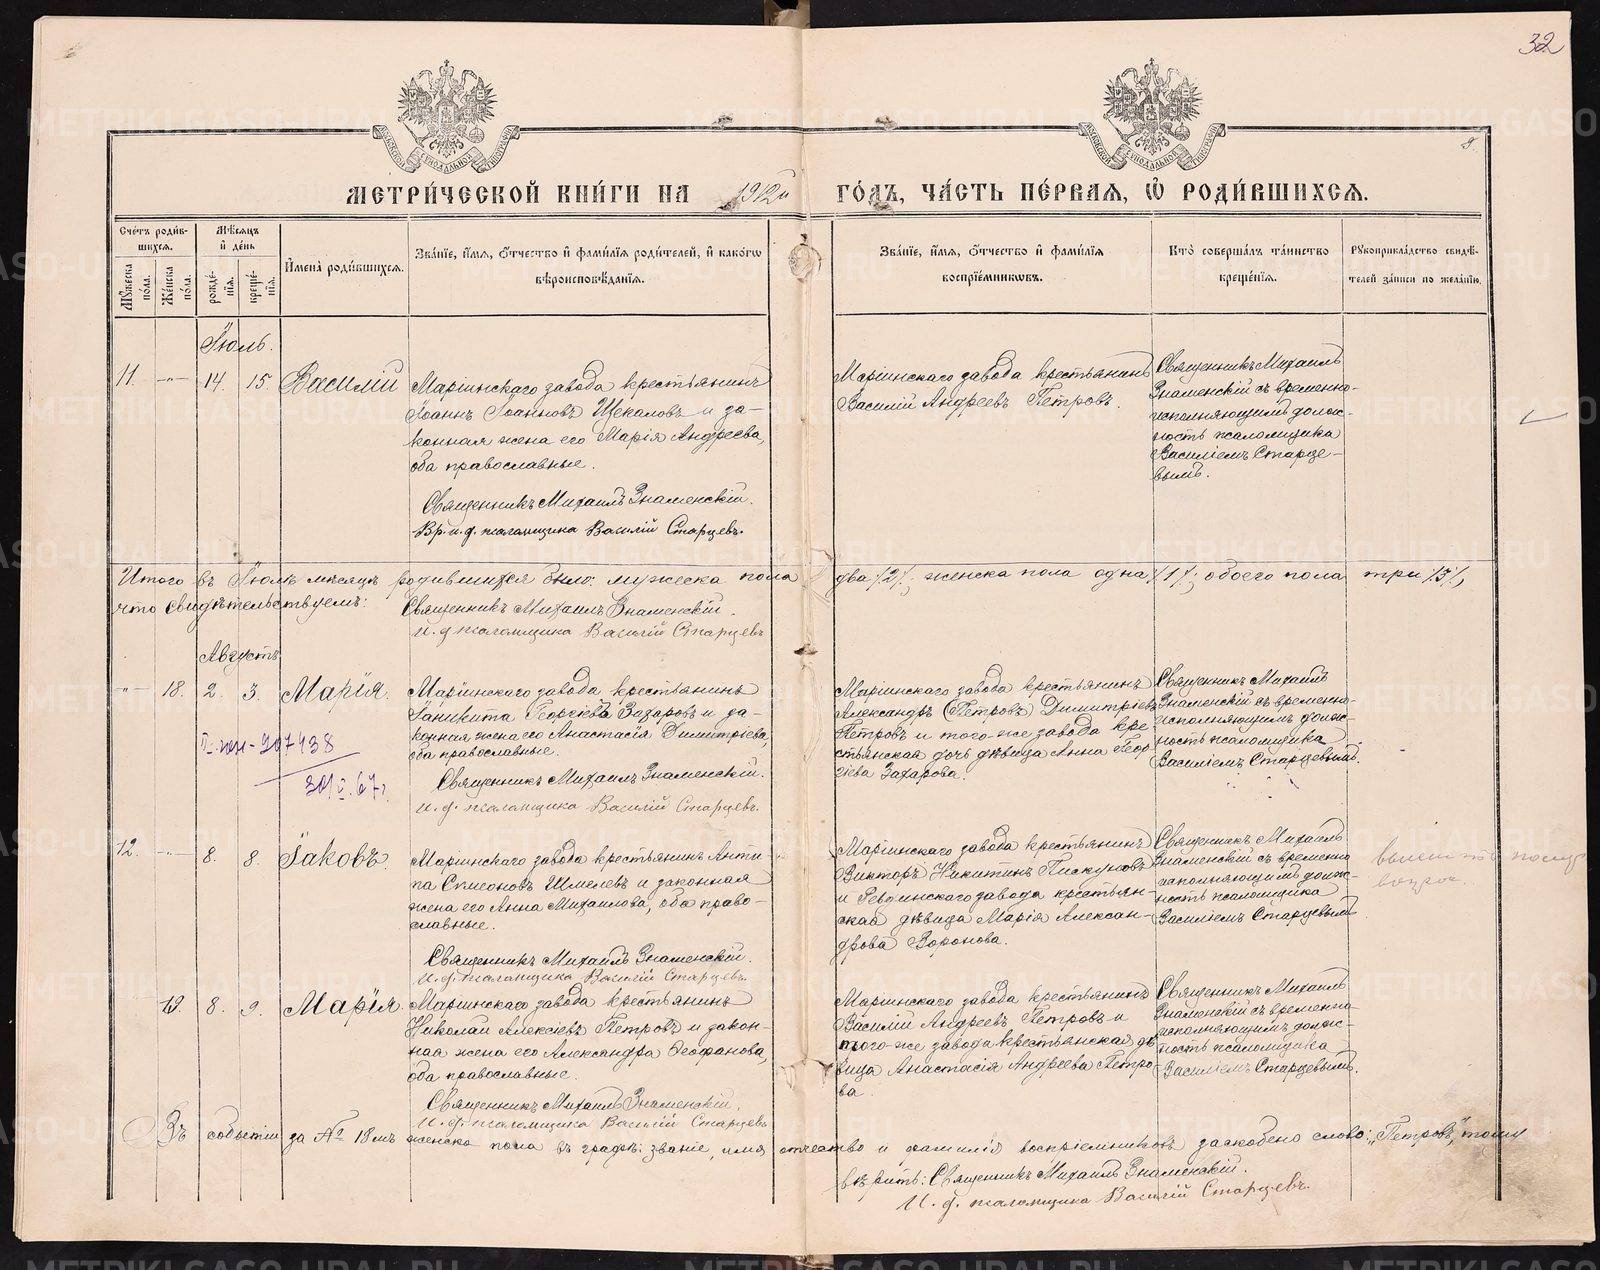 32
8.
МЕТРИ́ЧЕСКОЙ КНИ́ГИ НА 1912й ГО́ДЪ, ЧА́СТЬ ПЕ́РВАЯ, Ѽ РОДИ́ВШИХСЯ.
Сче́тъ роди́в-
шихся.
Мꙋ́жеска по́ла.
Же́нска по́ла.
Мѣ́сяцъ
и҆ де́нь
рожде́-
нїя.
креще́-
нїя.
И҆мена̀ роди́вшихся.
Зва́нїе, и҆́мя, ѻ҆́тчество и҆ фами́лїя роди́телей, и҆ како́гѡ
вѣроисповѣ́данїя.
Зва́нїе, и҆́мя, ѻ҆́тчество и҆ фами́лїя
воспрїе́мникѡвъ.
Кто̀ соверша́лъ та́инство
креще́нїя.
Рꙋкоприкла́дство свидѣ́-
телей за́писи по жела́нїю.
Іюль.
11. -"- 14. 15. Василій
Маріинскаго завода крестьянинъ
Іоаннъ Іоанновъ Щекаловъ и за-
конная жена его Марія Андреева,
оба православные.
Священникъ Михаилъ Знаменскій.
Вр. и. д. псаломщика Василій Старцевъ.
Маріинскаго завода крестьянинъ
Василій Андреевъ Петровъ.
Священникъ Михаилъ
Знаменскій съ временно-
исполняющимъ долж-
ность псаломщика
Василіемъ Старце-
вымъ.
Итого въ Іюлѣ мѣсяцѣ родившихся было: мужеска пола два /2/; женска пола одна /1/; обоего пола три /3/,
что свидѣтельствуемъ:
Священникъ Михаилъ Знаменскій.
И. д. псаломщика Василій Старцевъ
Августъ
-"- 18. 2. 3. Марія.
Маріинскаго завода крестьянинъ
Іаникита Георгіевъ Захаровъ и за-
конная жена его Анастасія Димитріева,
оба православные.
Священникъ Михаилъ Знаменскій.
И. д. псаломщика Василій Старцевъ.
207438
67г.
Маріинскаго завода крестьянинъ
Александръ (Петровъ) Димитріевъ
Петровъ и того-же завода кре
стьянская дочь дѣвица Анна Геор
гіева Захарова.
Священникъ Михаилъ
Знаменскій съ временно-
исполняющимъ долж-
ность псаломщика
Василіемъ Старцевымъ.
12. -"- 8. 8. Іаковъ.
Маріинскаго завода крестьянинъ Анти
па Симеоновъ Шмелевъ и законная
жена его Анна Михаилова, оба право-
славные.
Священникъ Михаилъ Знаменскій.
И. д. псаломщика Василій Старцевъ.
Маріинскаго завода крестьянинъ
Викторъ Никитинъ Пискуновъ
и Ревдинскаго завода крестьян-
ская дѣвица Марія Алексан-
дрова Воронова.
Священникъ Михаилъ
Знаменскій съ временно
исполняющимъ долж-
ность псаломщика
Василіемъ Старцевымъ
19. 8. 9. Марія.
Маріинскаго завода крестьянинъ
Николай Алексіевъ Петровъ и закон-
ная жена его Александра Ѳеофанова,
оба православные.
Священникъ Михаилъ Знаменскій.
И. д. псаломщика Василій Старцевъ
Маріинскаго завода крестьянинъ
Василій Андреевъ Петровъ и
того-же завода крестьянская дѣ
вица Анастасія Андреева Петро-
ва.
Священникъ Михаилъ
Знаменскій съ временно
исполняющимъ долж-
ность псаломщика
Василіемъ Старцевымъ.
Въ событіи за № 18мъ женска пола въ графѣ: званіе, имя отчество и фамилія воспріемниковъ заскобено слово: „Петровъ", тому
вѣрить: Священникъ Михаилъ Знаменскій.
И. д. псаломщика Василій Старцевъ.